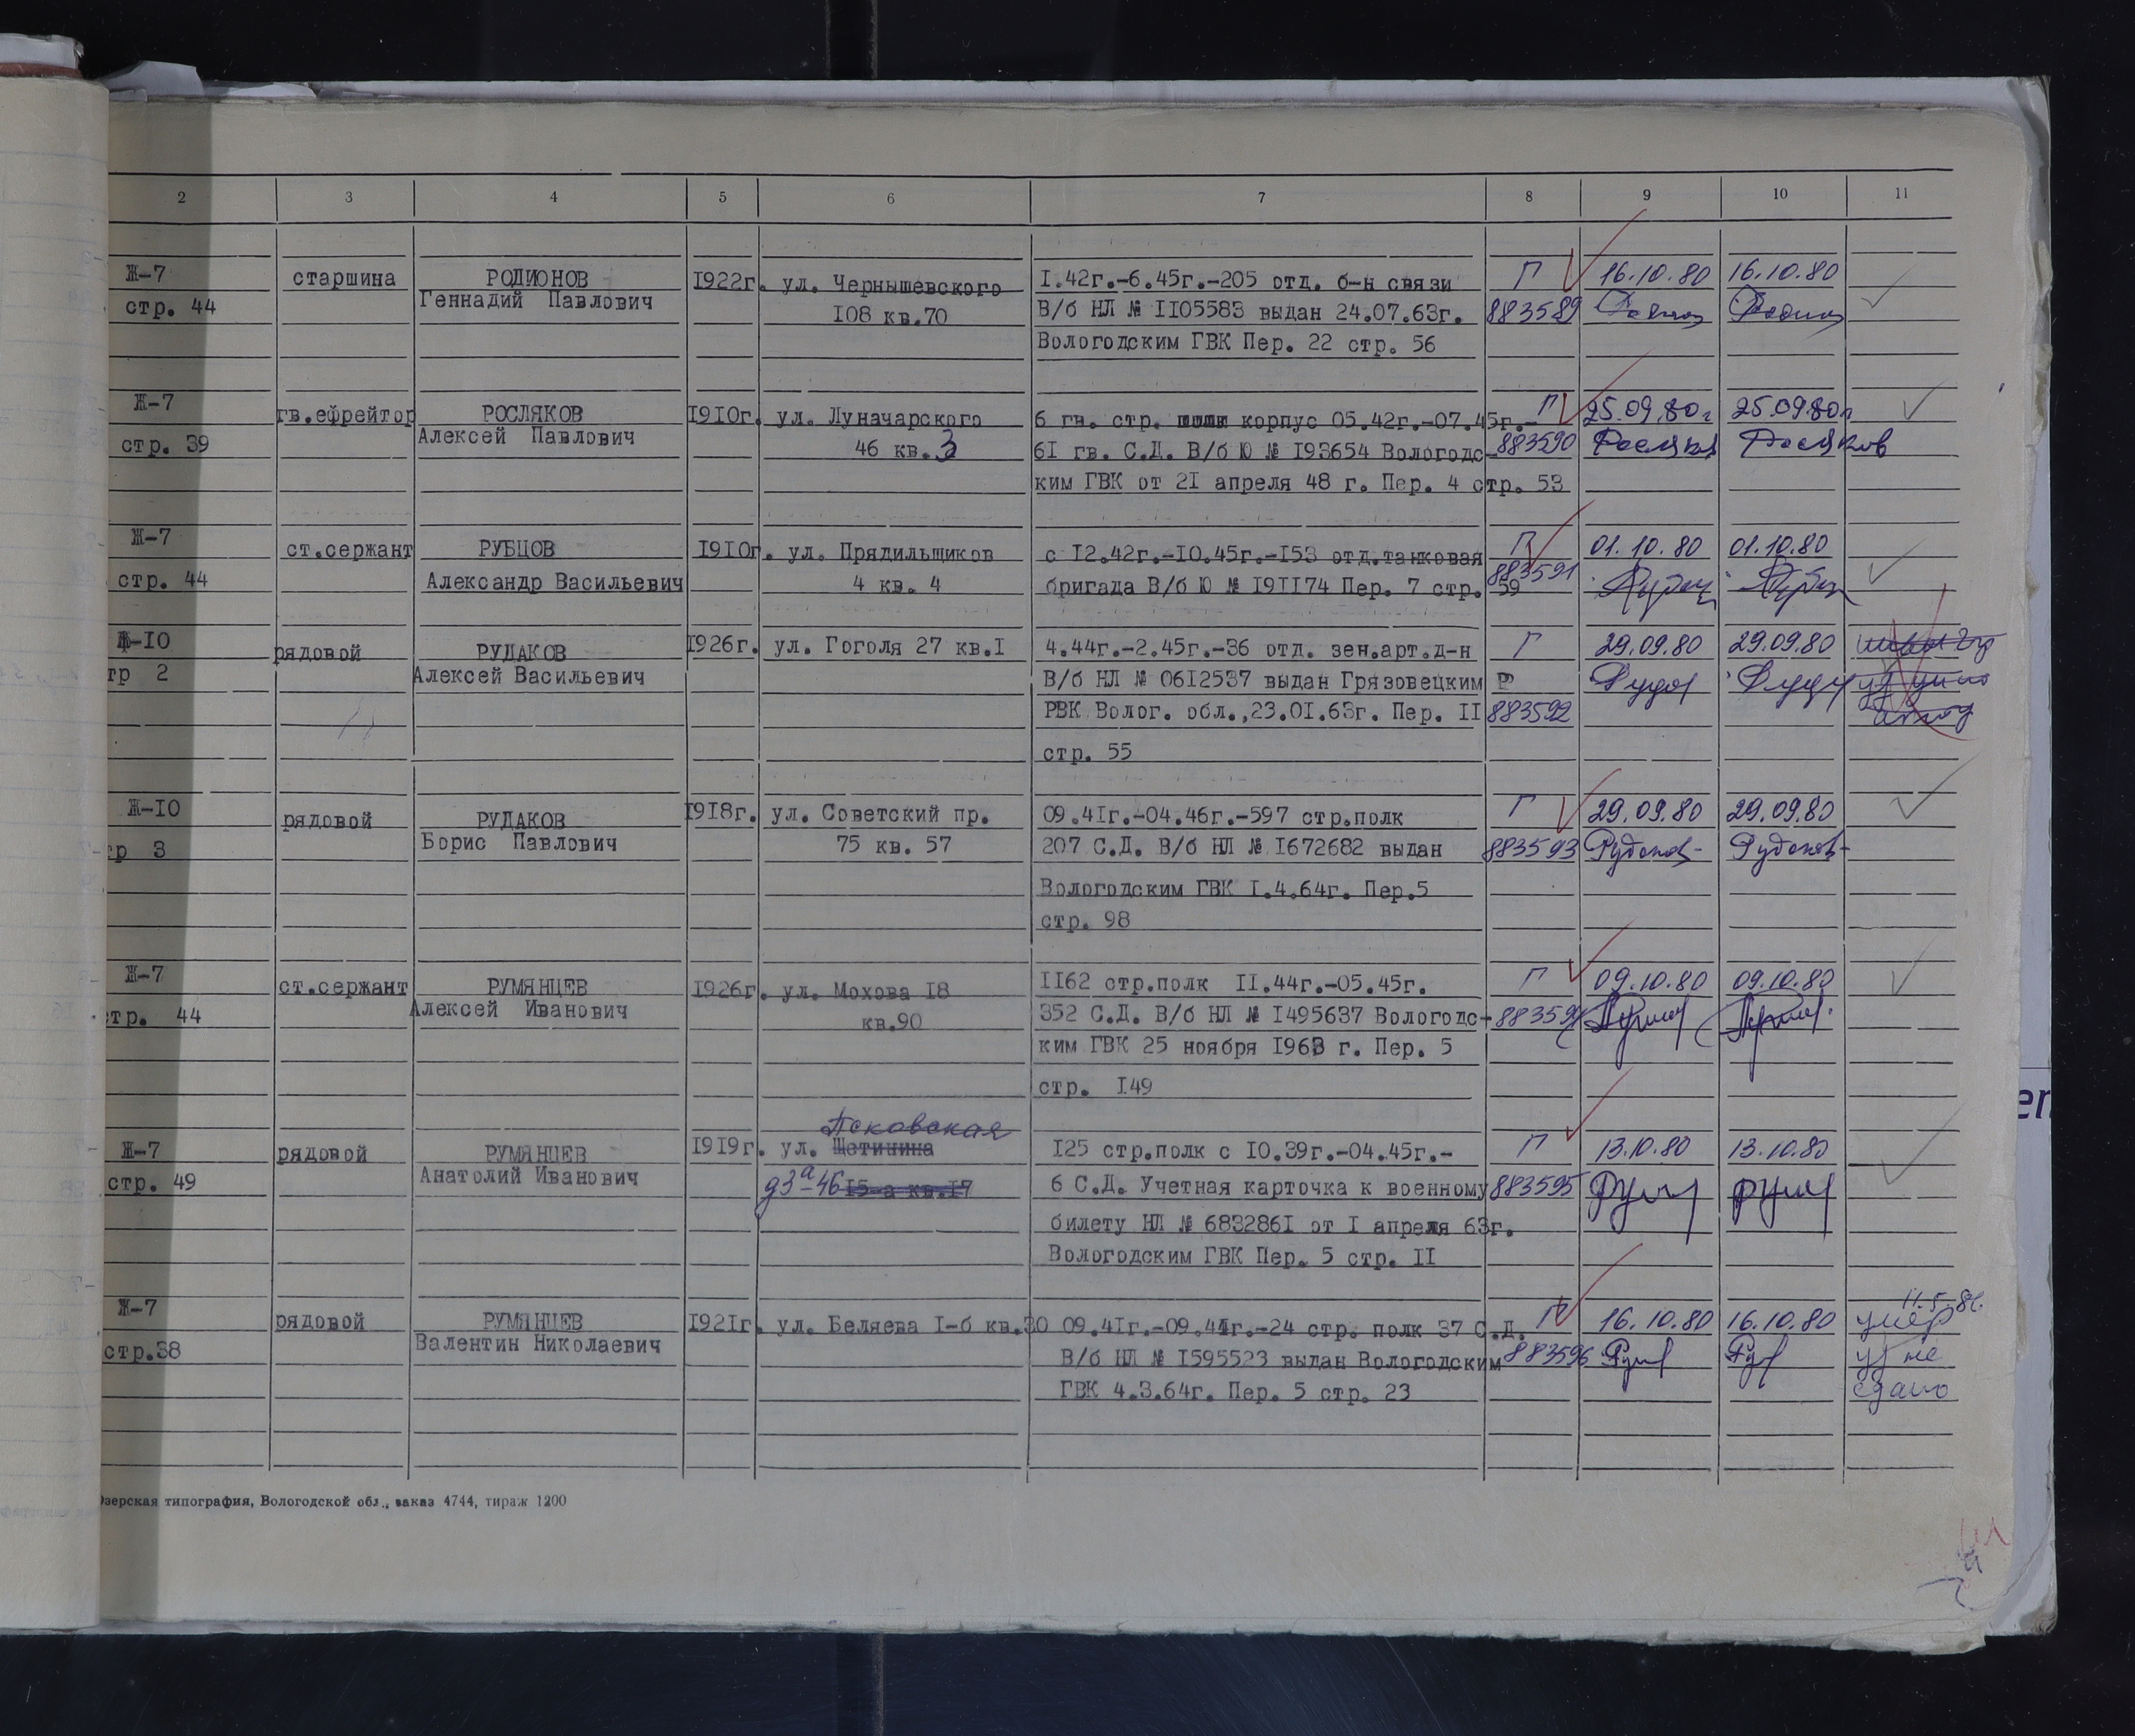 2 3 4 5 6 7 8 9 10 11
Ж-7 старшина РОДИОНОВ 1922г. ул. Чернышевского 1.42г.-6.45г.-205 отд. б-н связи Г 16.10.80 16.10.80
стр. 44 Геннадий Павлович 108 кв.70 В/б НЛ № 1105583 выдан 24.07.63г. 883589
Вологодским ГВК Пер. 22 стр. 56
Ж-7 гв.ефрейтор РОСЛЯКОВ 1910г. ул. Луначарского 6 гв. стр. корпус 05.42г.-07.45г.- Г 25.09.80г 25.09.80г
стр. 39 Алексей Павлович 46 кв.3 61 гв. С.Д. В/б Ю № 193654 Вологодс- 883590 Росляков Росляков
ким ГВК от 21 апреля 48 г. Пер. 4 стр. 53
Ж-7 ст.сержант РУБЦОВ 1910г. ул. Прядильщиков с 12.42г.-10.45г.-153 отд.танковая Г 01.10.80 01.10.80
стр. 44 Александр Васильевич 4 кв. 4 бригада В/б Ю № 191174 Пер. 7 стр. 59 883591
Ж-10 рядовой РУДАКОВ 1926г. ул. Гоголя 27 кв.1 4.44г.-2.45г.-36 отд. зен.арт.д-н Г 29.09.80 29.09.80
тр 2 Алексей Васильевич В/б НЛ № 0612537 выдан Грязовецким Р
РВК Волог. обл.,23.01.63г. Пер. 11 883592
стр. 55
Ж-10 рядовой РУДАКОВ 1918г. ул. Советский пр. 09.41г.-04.46г.-597 стр.полк Г 29.09.80 29.09.80
тр 3 Борис Павлович 75 кв. 57 207 С.Д. В/б НЛ № 1672682 выдан 883593 Рудаков Рудаков
Вологодским ГВК 1.4.64г. Пер.5
стр. 98
Ж-7 ст.сержант РУМЯНЦЕВ 1926г. ул. Мохова 18 1162 стр.полк 11.44г.-05.45г. Г 09.10.80 09.10.80
стр. 44 Алексей Иванович кв.90 352 С.Д. В/б НЛ № 1495637 Вологодс- 883594
ким ГВК 25 ноября 1963 г. Пер. 5
стр. 149
Псковская
Ж-7 рядовой РУМЯНЦЕВ 1919г. ул. Щетинина 125 стр.полк с 10.39г.-04.45г.- Г 13.10.80 13.10.80
стр. 49 Анатолий Иванович 93а-46 15-а кв.17 6 С.Д. Учетная карточка к военному 883595 Рум Рум
билету НЛ № 6832861 от 1 апреля 63г.
Вологодским ГВК Пер. 5 стр. 11
11.5.86.
Ж-7 рядовой РУМЯНЦЕВ 1921г. ул. Беляева 1-б кв.30 09.41г.-09.41г.-24 стр. полк 37 С.Д. Г 16.10.80 16.10.80 умер
стр.38 Валентин Николаевич В/б НЛ № 1595523 выдан Вологодским 883596 уд не
ГВК 4.3.64г. Пер. 5 стр. 23 сдано
Озерская типография, Вологодской обл., заказ 4744, тираж 1200